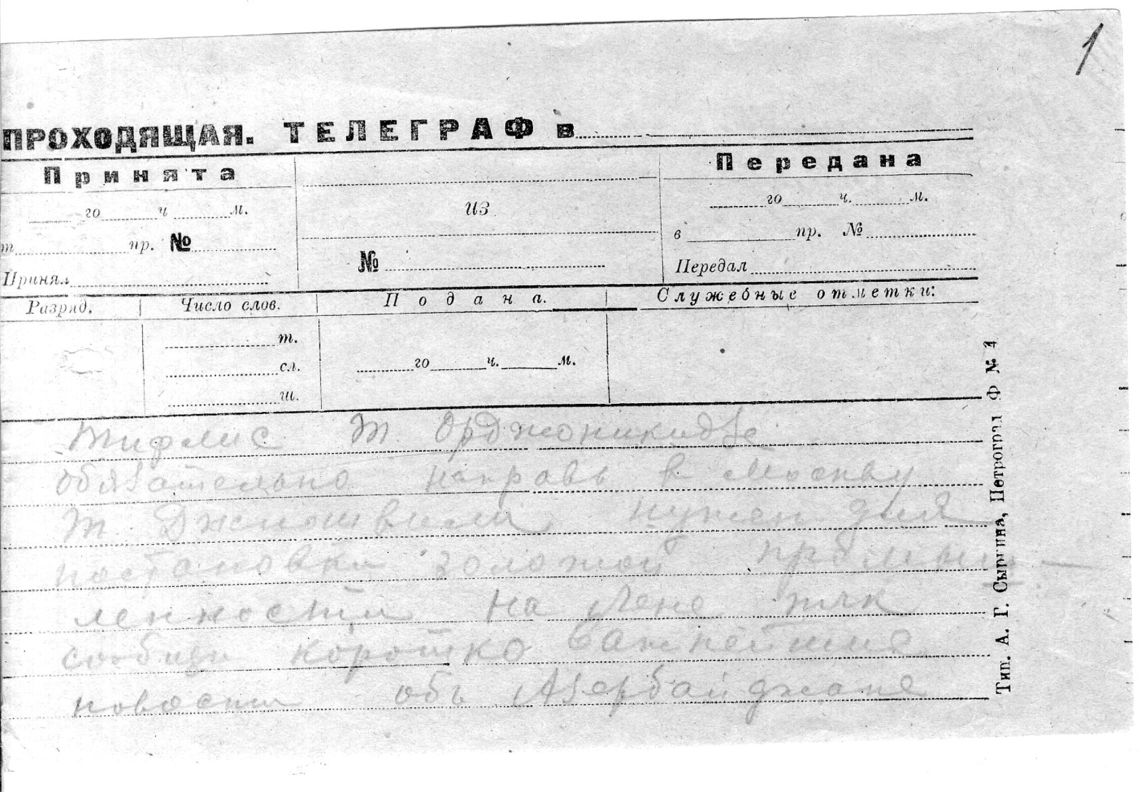 1
ПРОХОДЯЩАЯ. ТЕЛЕГРАФ в
Принята
го ч м.
т пр. №
Принял
из
№
Передана
го ч. м.
в пр. №
Передал
Разряд. Число слов. Подана. Служебные отметки:
т.
сл. го ч. м.
ш.
Тифлис Т Орджоникидзе
обязательно направь в Москву
Т нужен для
постановки золотой промыш-
ленности на Лене тчк
сообщи коротко важнейшие
новости объ Азербайджане
Тип. А. Г. Сыркина, Петроград Ф №